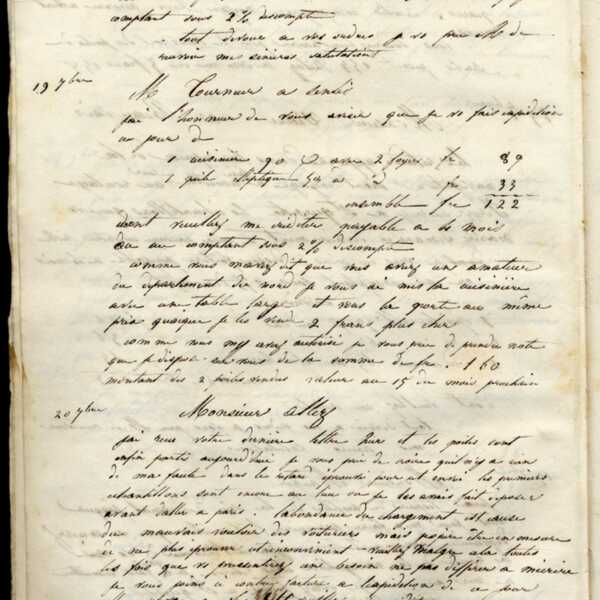 comptant sous 2% descompte
tout devoué a vos ordres je vs prie M de
recevoir mes sinceres salutations
19 7bre M Tournier a Senlis
jai lhonneur de vous aviser que je vs fais expedition
au jour de
1 cuisinière 90 avec 2 foyers fr 89
1 poele eliptique fr 33
ensemble fr 122
dont veuillez me créditer payable a 6 mois
ou au comptant sous 2% descompte
comme vous mavez dit que vous aviez un amateur
du departement du nord je vous ai mis la cuisinière
avec une table large et vous la porte au même
prix quoique je les vende 2 francs plus cher
comme vous my avez autorisé je vous prie de prendre note
que je dispose sur vous de la somme de fr. 160
montant des 2 poeles rendus valeur au 15 du mois prochain
20 7bre Monsieur
jai recu votre derniere lettre hier et les poeles sont
enfin partis aujourd'hui je vous prie de croire quil ny a rien
de ma faute dans le retard éprouvé pour cet envoi les premiers
echantillons sont encore au lieu ou je les avais fait déposer
avant daller a paris. labondance du chargement est cause
du mauvais des voituriers mais jespere être en mesure
de ne plus éprouver veuillez malgré cela toutes
les fois que vs présentiez un besoin ne pas differer a mécrire
je vous joins a contre facture a lexpedition de ce jour